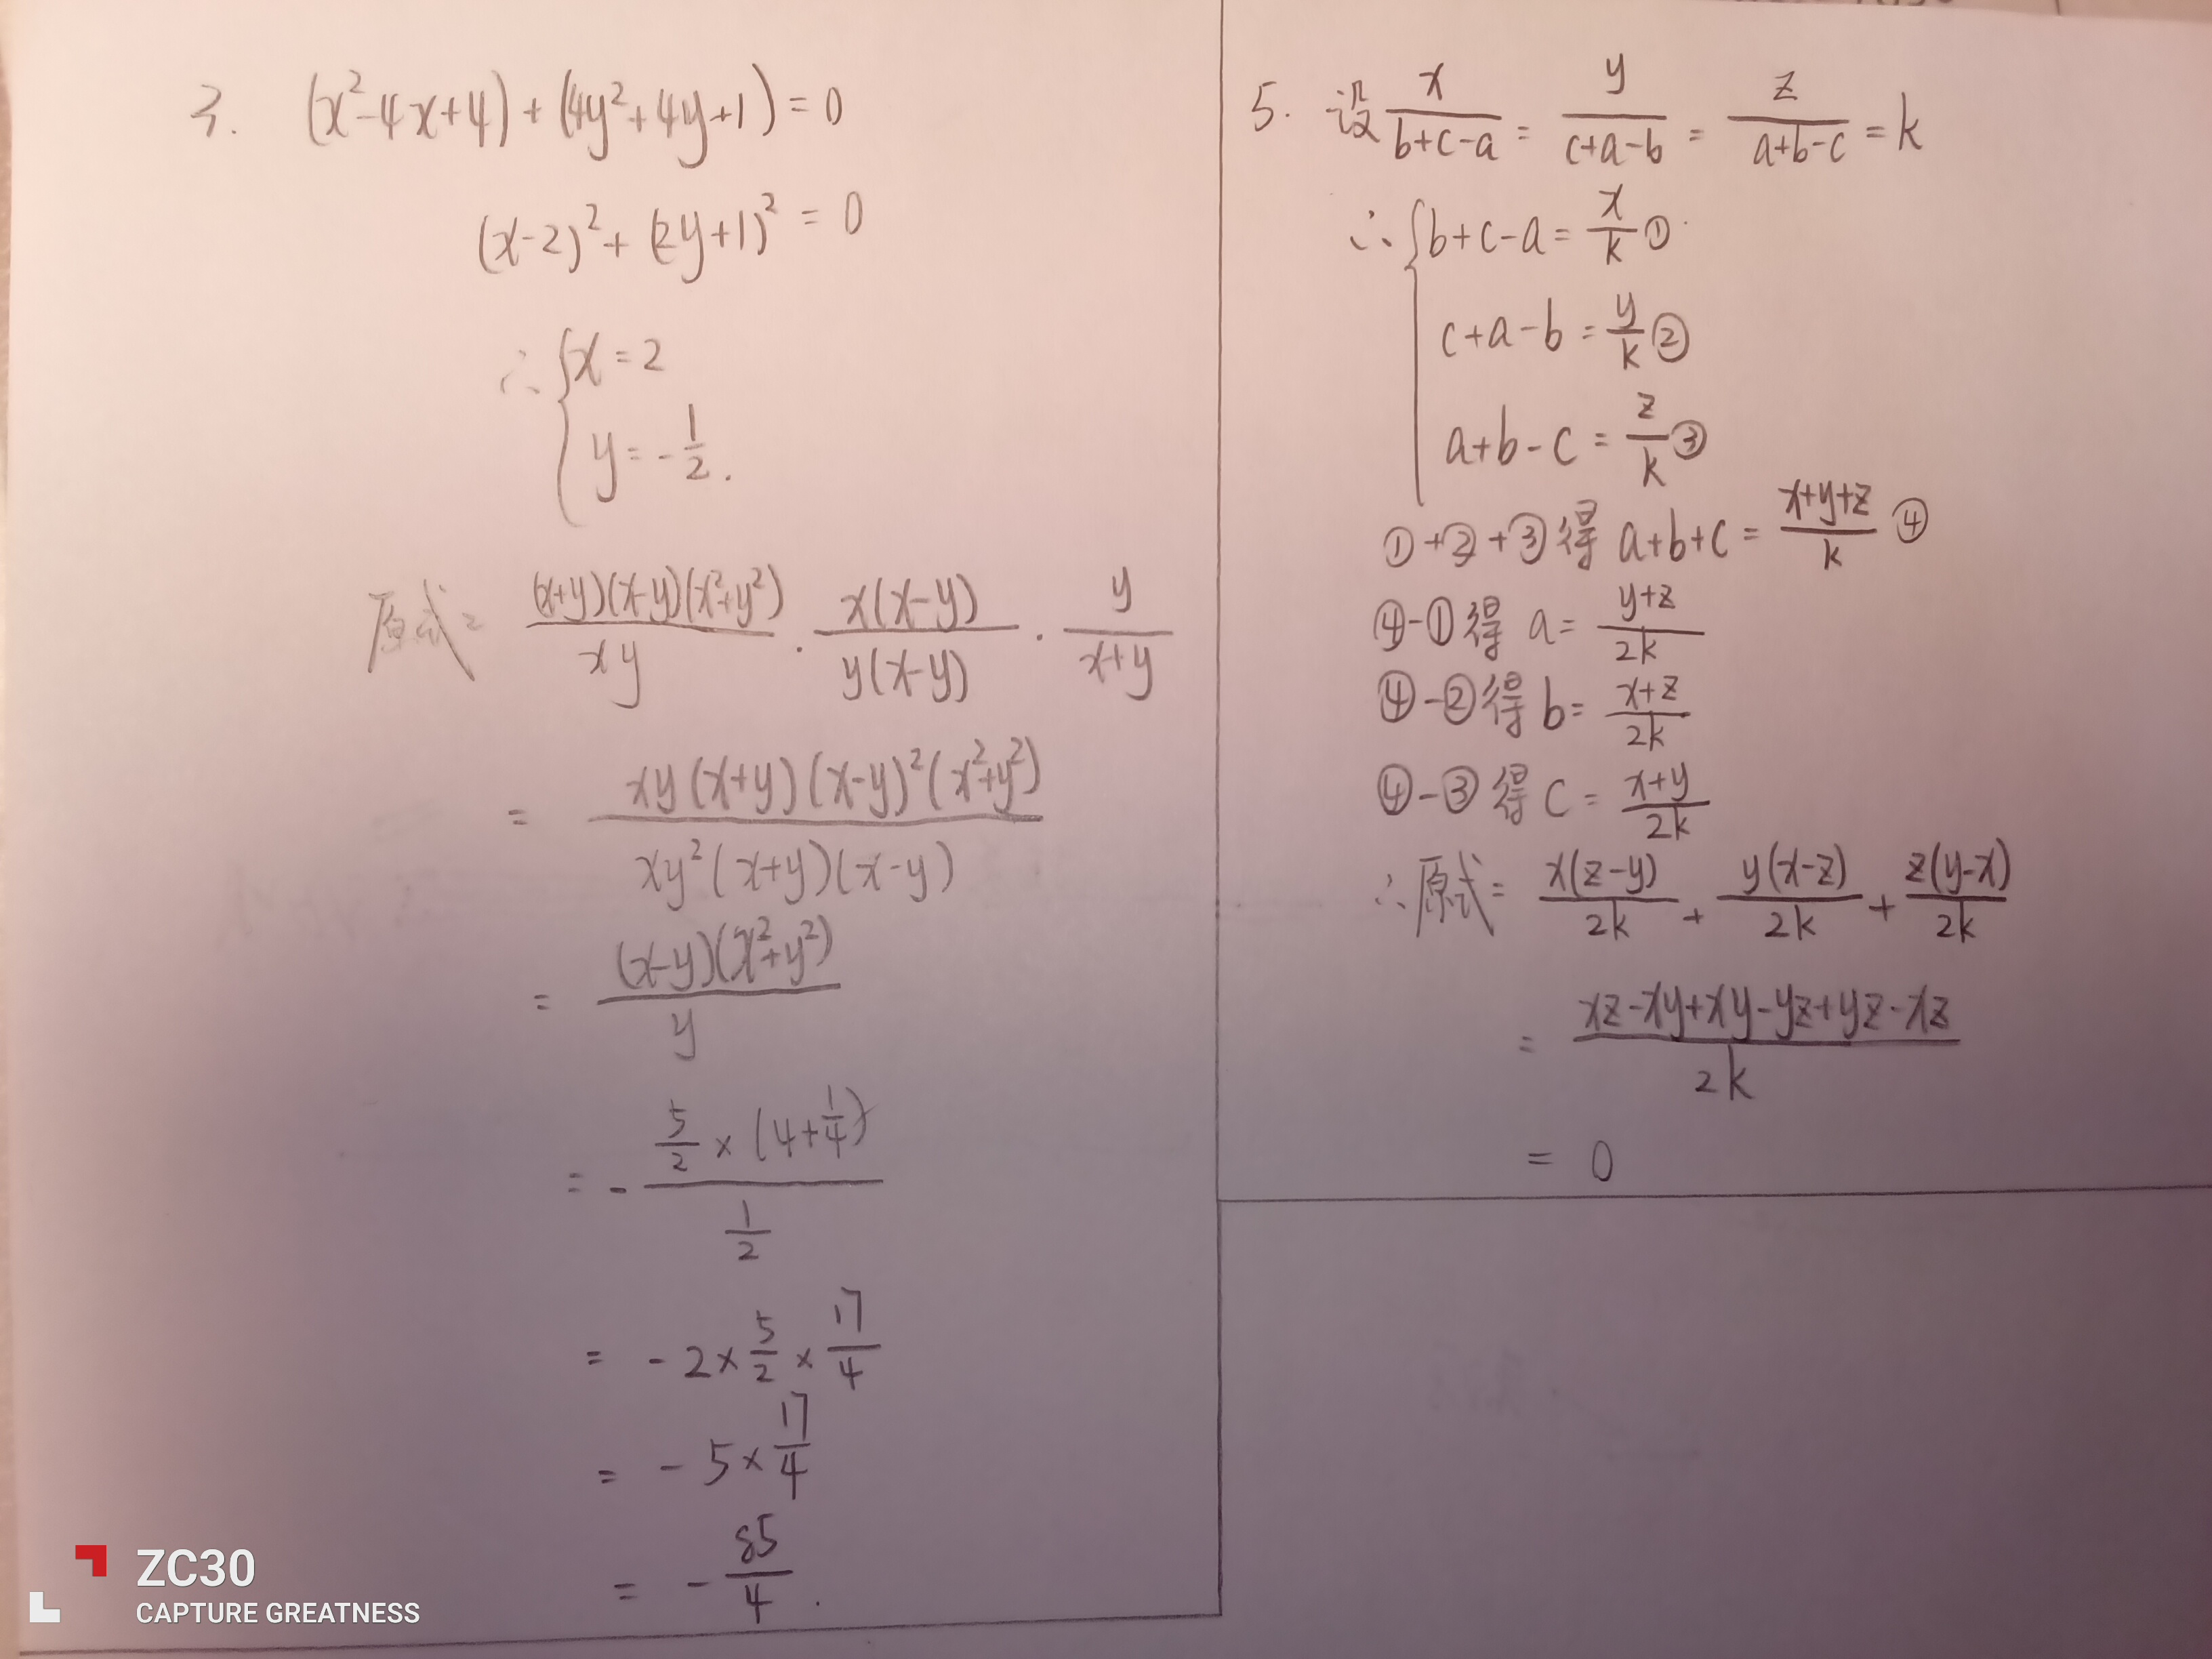 3. (x²-4x+4)+(4y²+4y+1)=0
(x-2)²+(2y+1)²=0
∴{x=2
y=-1/2.
原式=(x+y)(x-y)(x²+y²)/xy · x(x-y)/y(x-y) · y/x+y
= xy(x+y)(x-y)²(x²+y²)/xy²(x+y)(x-y)
= (x-y)(x²+y²)/y
= - 5/2×(4+1/4)/1/2
= -2×5/2×17/4
= -5×17/4
= -85/4.
5. 设 x/b+c-a = y/c+a-b = z/a+b-c = k
∴{b+c-a=x/k ①
c+a-b=y/k ②
a+b-c=z/k ③
①+②+③得 a+b+c=x+y+z/k ④
④-①得 a=y+z/2k
④-②得 b=x+z/2k
④-③得 c=x+y/2k
∴原式=x(z-y)/2k + y(x-z)/2k + z(y-x)/2k
= xz-xy+xy-yz+yz-xz/2k
= 0
ZC30
CAPTURE GREATNESS